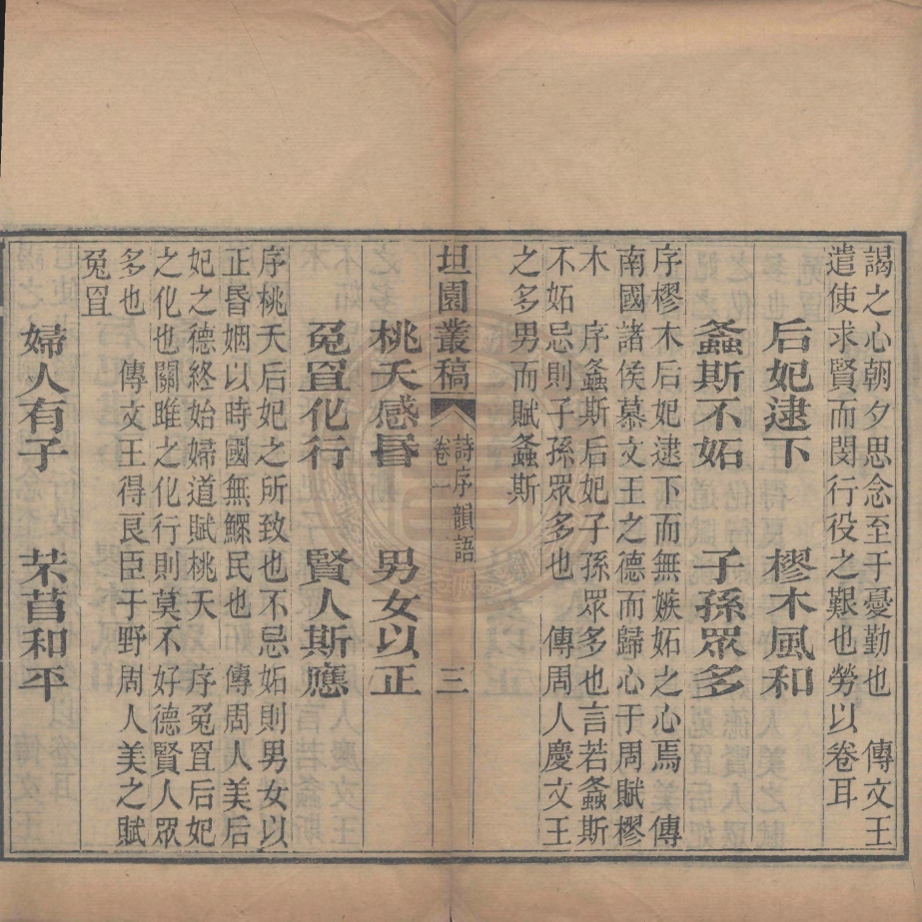 謁之心朝夕思念至于憂勤也　傳文王
遣使求賢而閔行役之艱也勞以卷耳
后妃逮下　樛木風和
螽斯不妬　子孫眾多
序樛木后妃逮下而無嫉妬之心焉　傳
南國諸侯慕文王之德而歸心于周賦樛
木　序螽斯后妃子孫眾多也言若螽斯
不妬忌則子孫眾多也　傳周人慶文王
之多男而賦螽斯
坦園叢稿　詩序韻語　卷一　三
桃夭感昏　男女以正
兔罝化行　賢人斯應
序桃夭后妃之所致也不忌妬則男女以
正昏姻以時國無鰥民也　傳周人美后
妃之德終始婦道賦桃夭　序兔罝后妃
之化也關雎之化行則莫不好德賢人眾
多也　傳文王得良臣于野周人美之賦
兔罝
婦人有子　芣苢和平